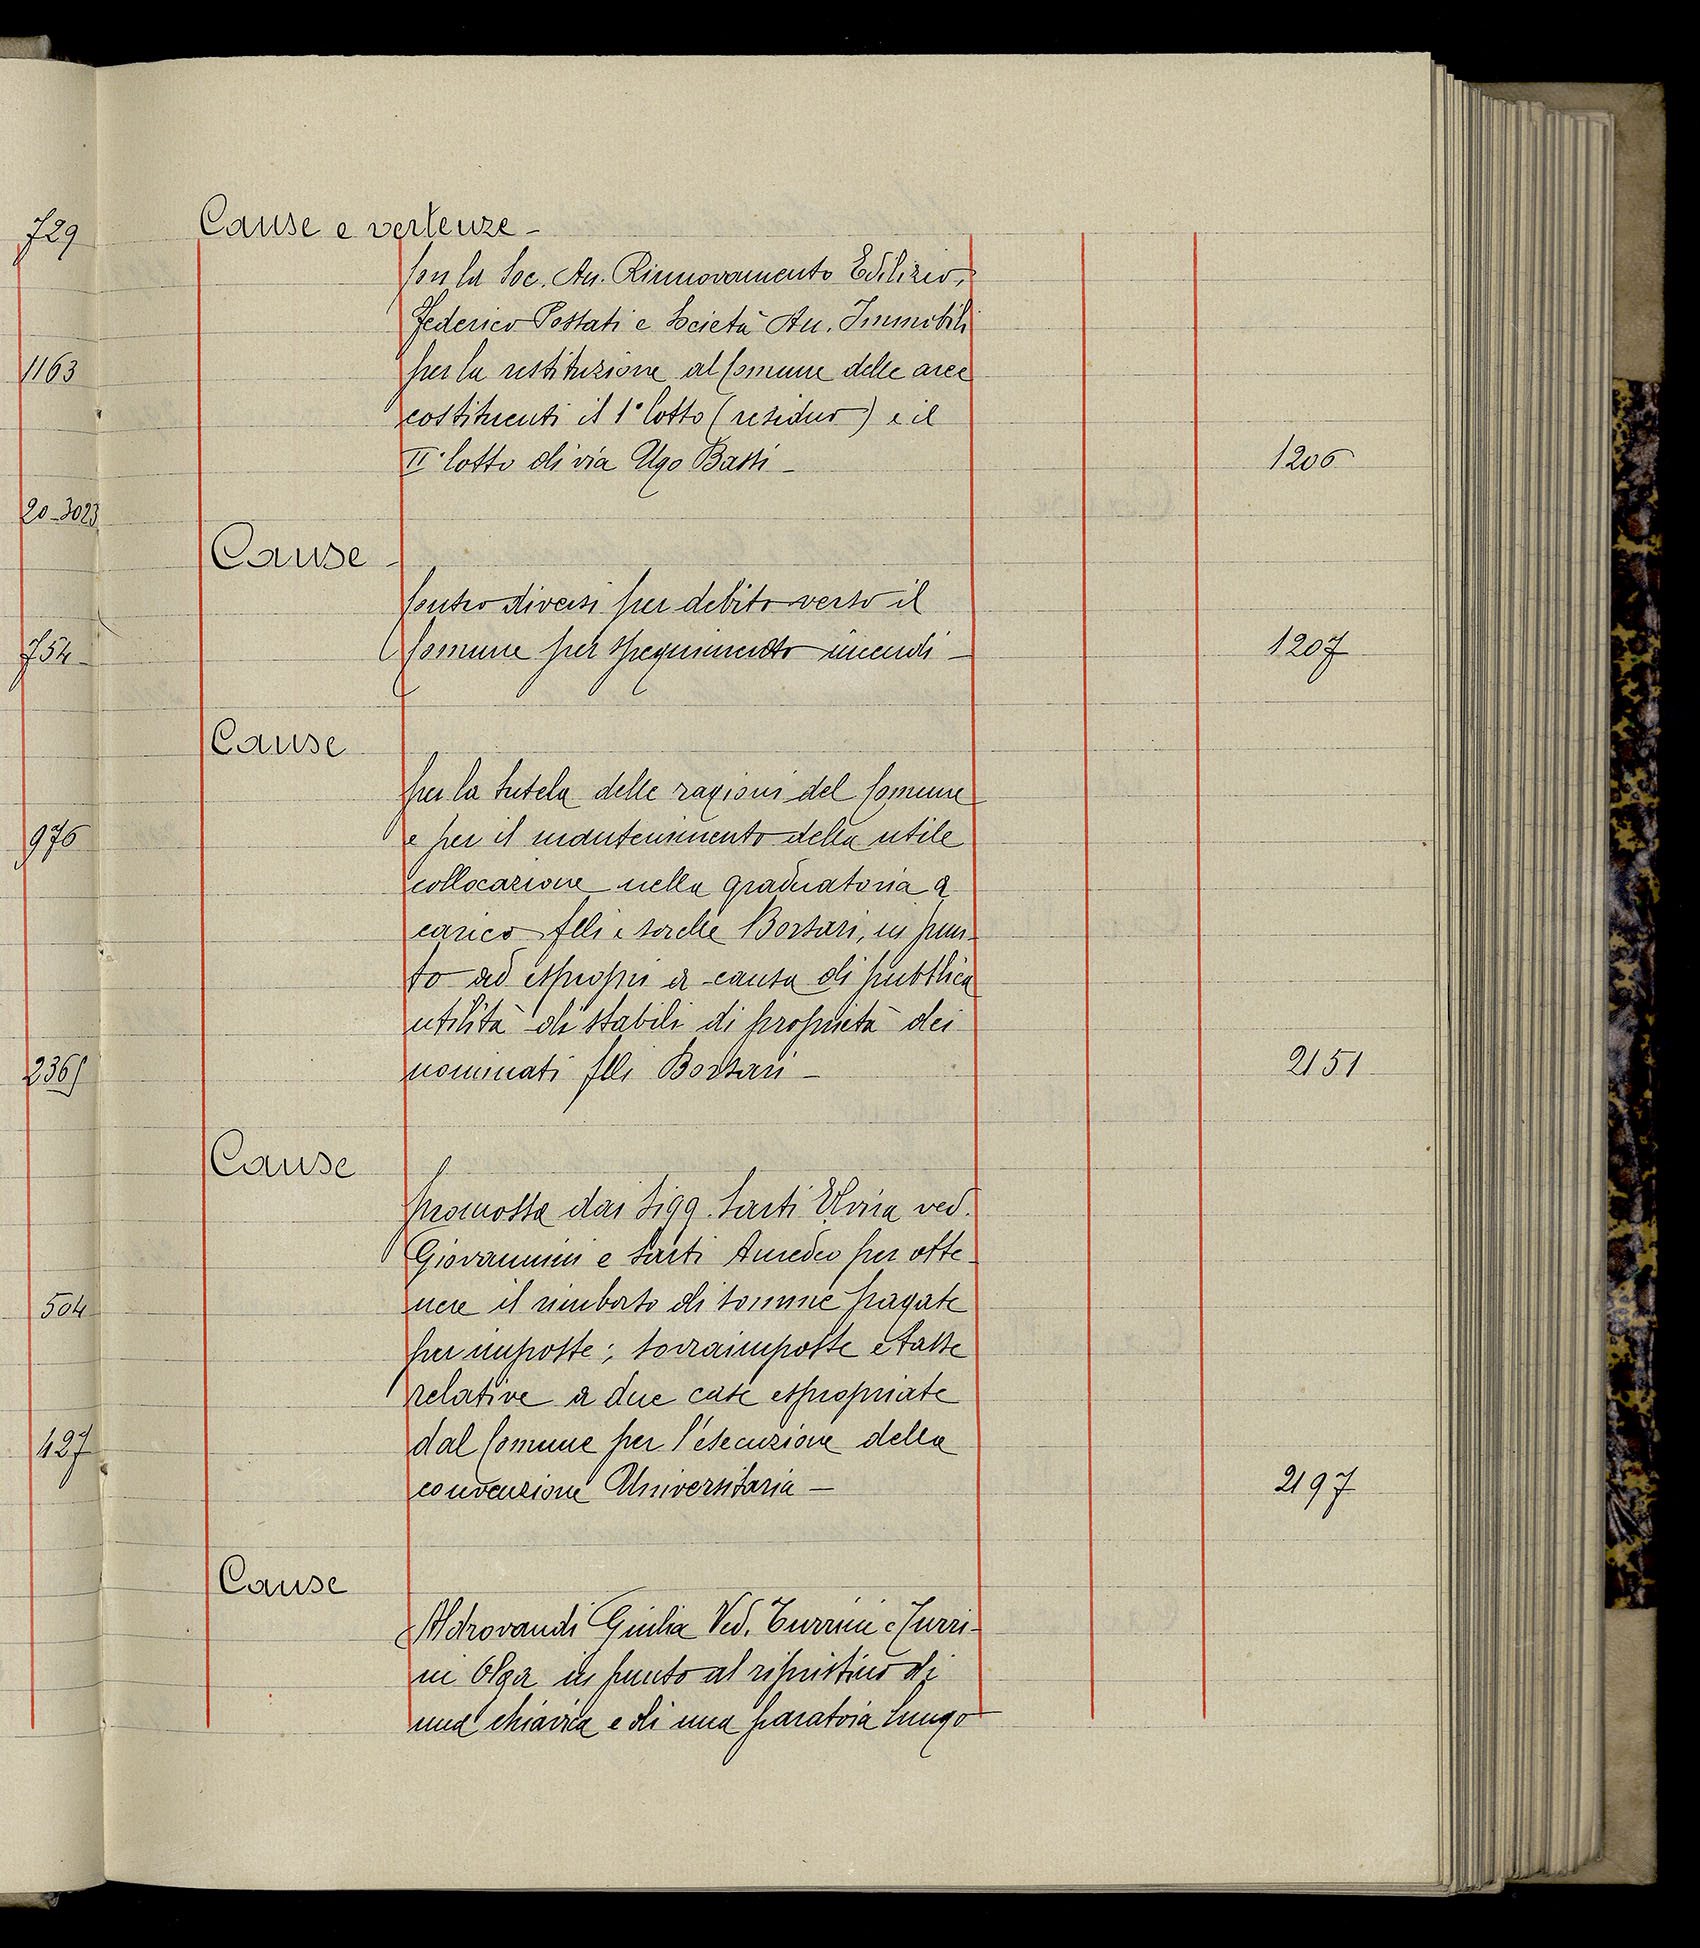 729
1163
20-3023
754
976
2365
504
427
Cause e vertenze -
Con la Soc. An. Rinnovamento Edilizio,
Federico Postati e Società An. Immobili
per la restituzione al Comune delle aree
costituenti il 1° lotto (residuo) e il
II° lotto di via Ugo Bassi - 1206
Cause -
Contro diversi per debito verso il
Comune per spegnimento incendi - 1207
Cause
per la tutela delle ragioni del Comune
e per il mantenimento della utile
collocazione nella graduatoria a
carico flli e sorelle Borsari, in pun-
to ad espropri a causa di pubblica
utilità di stabili di proprietà dei
nominati flli Borsari - 2151
Cause
promossa dai Sigg. Sarti Elvira ved.
Giovannini e Sarti Amedeo per otte-
nere il rimborso di somme pagate
per imposte; sovraimposte e tasse
relative a due case espropriate
dal Comune per l'esecuzione della
convenzione Universitaria - 2197
Cause
Aldrovandi Giulia Ved. Turrini e Turri-
ni Olga in punto al ripristino di
una chiavica e di una paratoia lungo